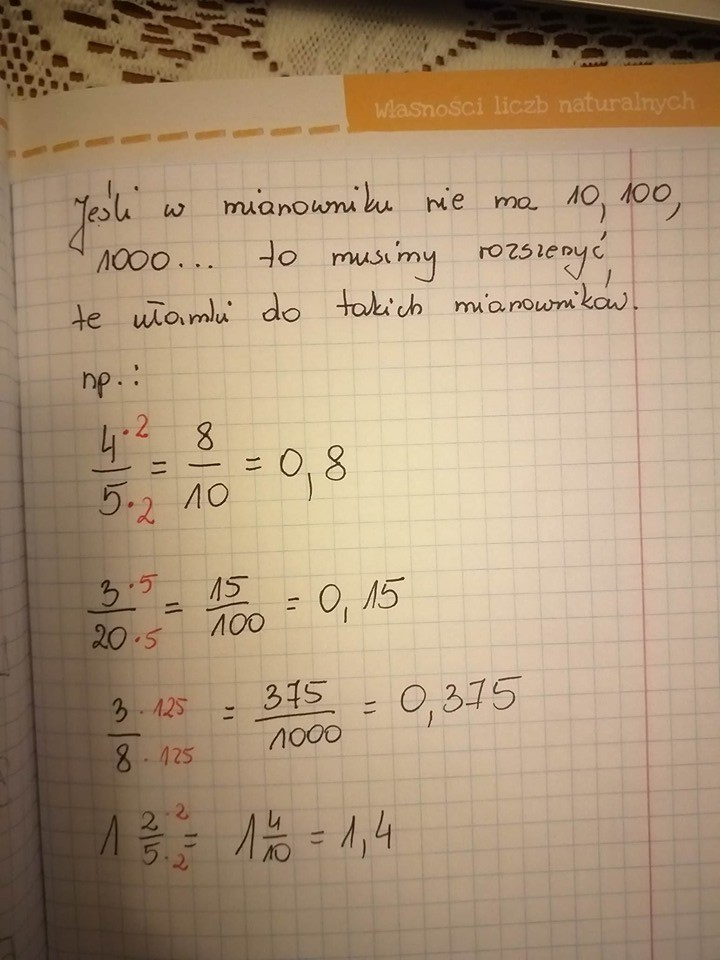 własności liczb naturalnych
Jeśli w mianowniku nie ma 10, 100,
1000... to musimy rozszerzyć
te ułamki do takich mianowników.
np.:
4·2/5·2 = 8/10 = 0,8
3·5/20·5 = 15/100 = 0,15
3·125/8·125 = 375/1000 = 0,375
1 2·2/5·2 = 1 4/10 = 1,4